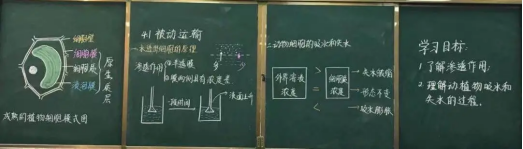 细胞壁
细胞膜
细胞质
液泡膜
原生质层
成熟的植物细胞模式图
4.1 被动运输
一.水进出细胞的原理
渗透作用
①半透膜
②膜两侧具有浓度差
一段时间
液面上升
二.动物细胞的吸水和失水
外界溶液浓度
>
=
<
细胞质浓度
失水皱缩
形态不变
吸水膨胀
学习目标:
1 了解渗透作用;
2 理解动植物吸水和
失水的过程.